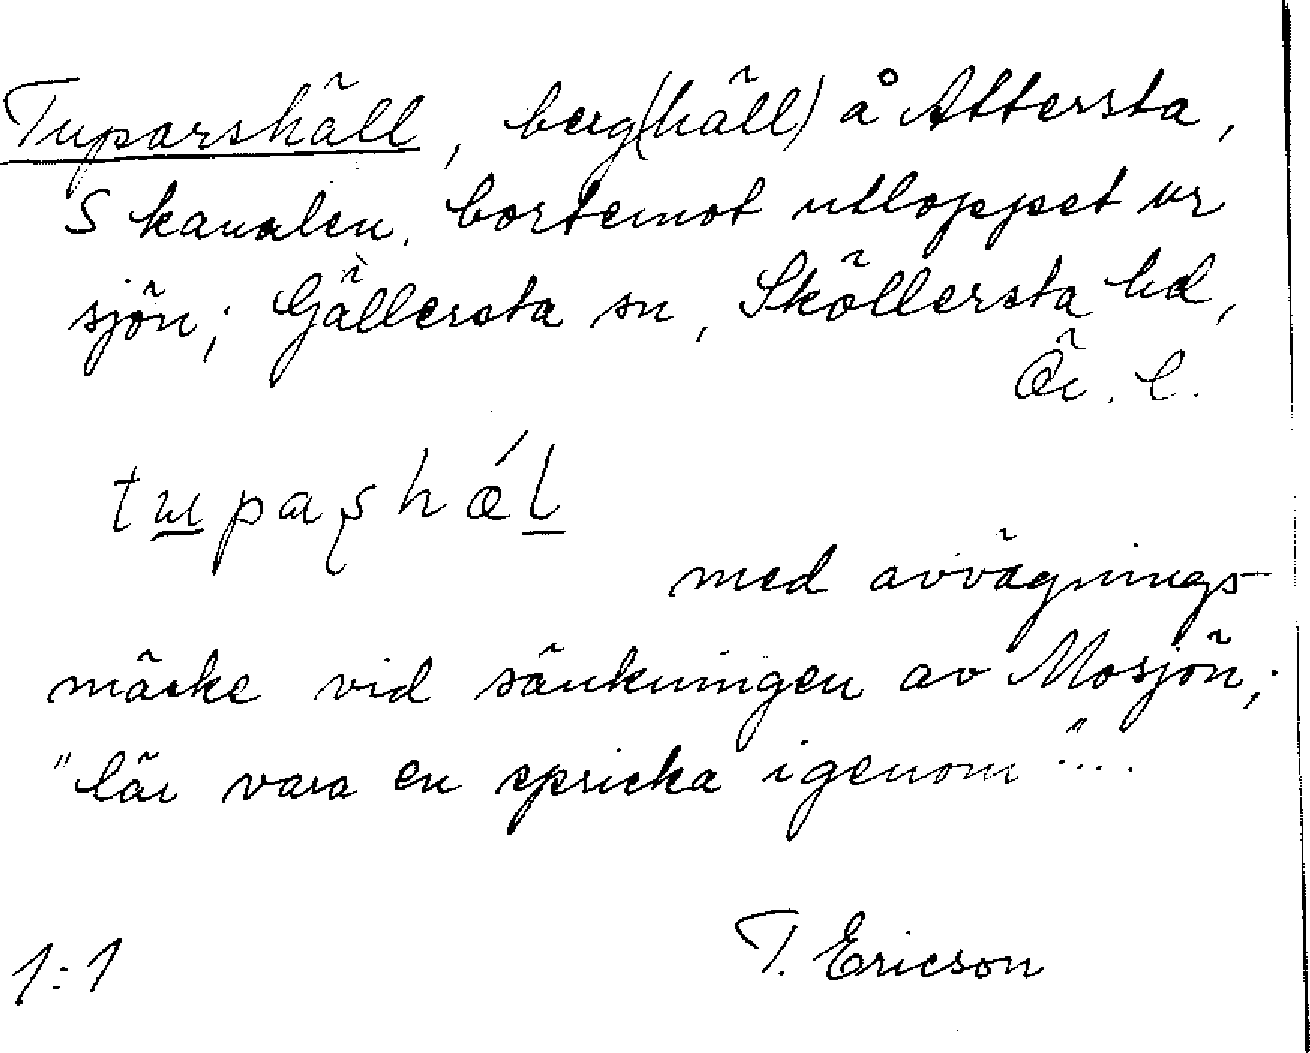 Tuparshäll, berg(häll) å Attersta,
S kanalen, bortemot utloppet ur
sjön; Gällersta sn, Sköllersta hd,
Ör. l.
tuparshæ´l
med avvägnings-
märke vid sänkningen av Mosjön;
"lär vara en spricka igenom"...
T. Ericson
1:1